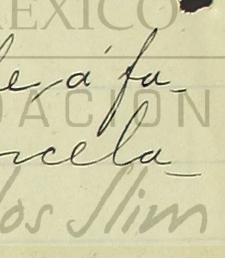 MEXICO
le, a' fa-
DACION
ncela-
los Slim